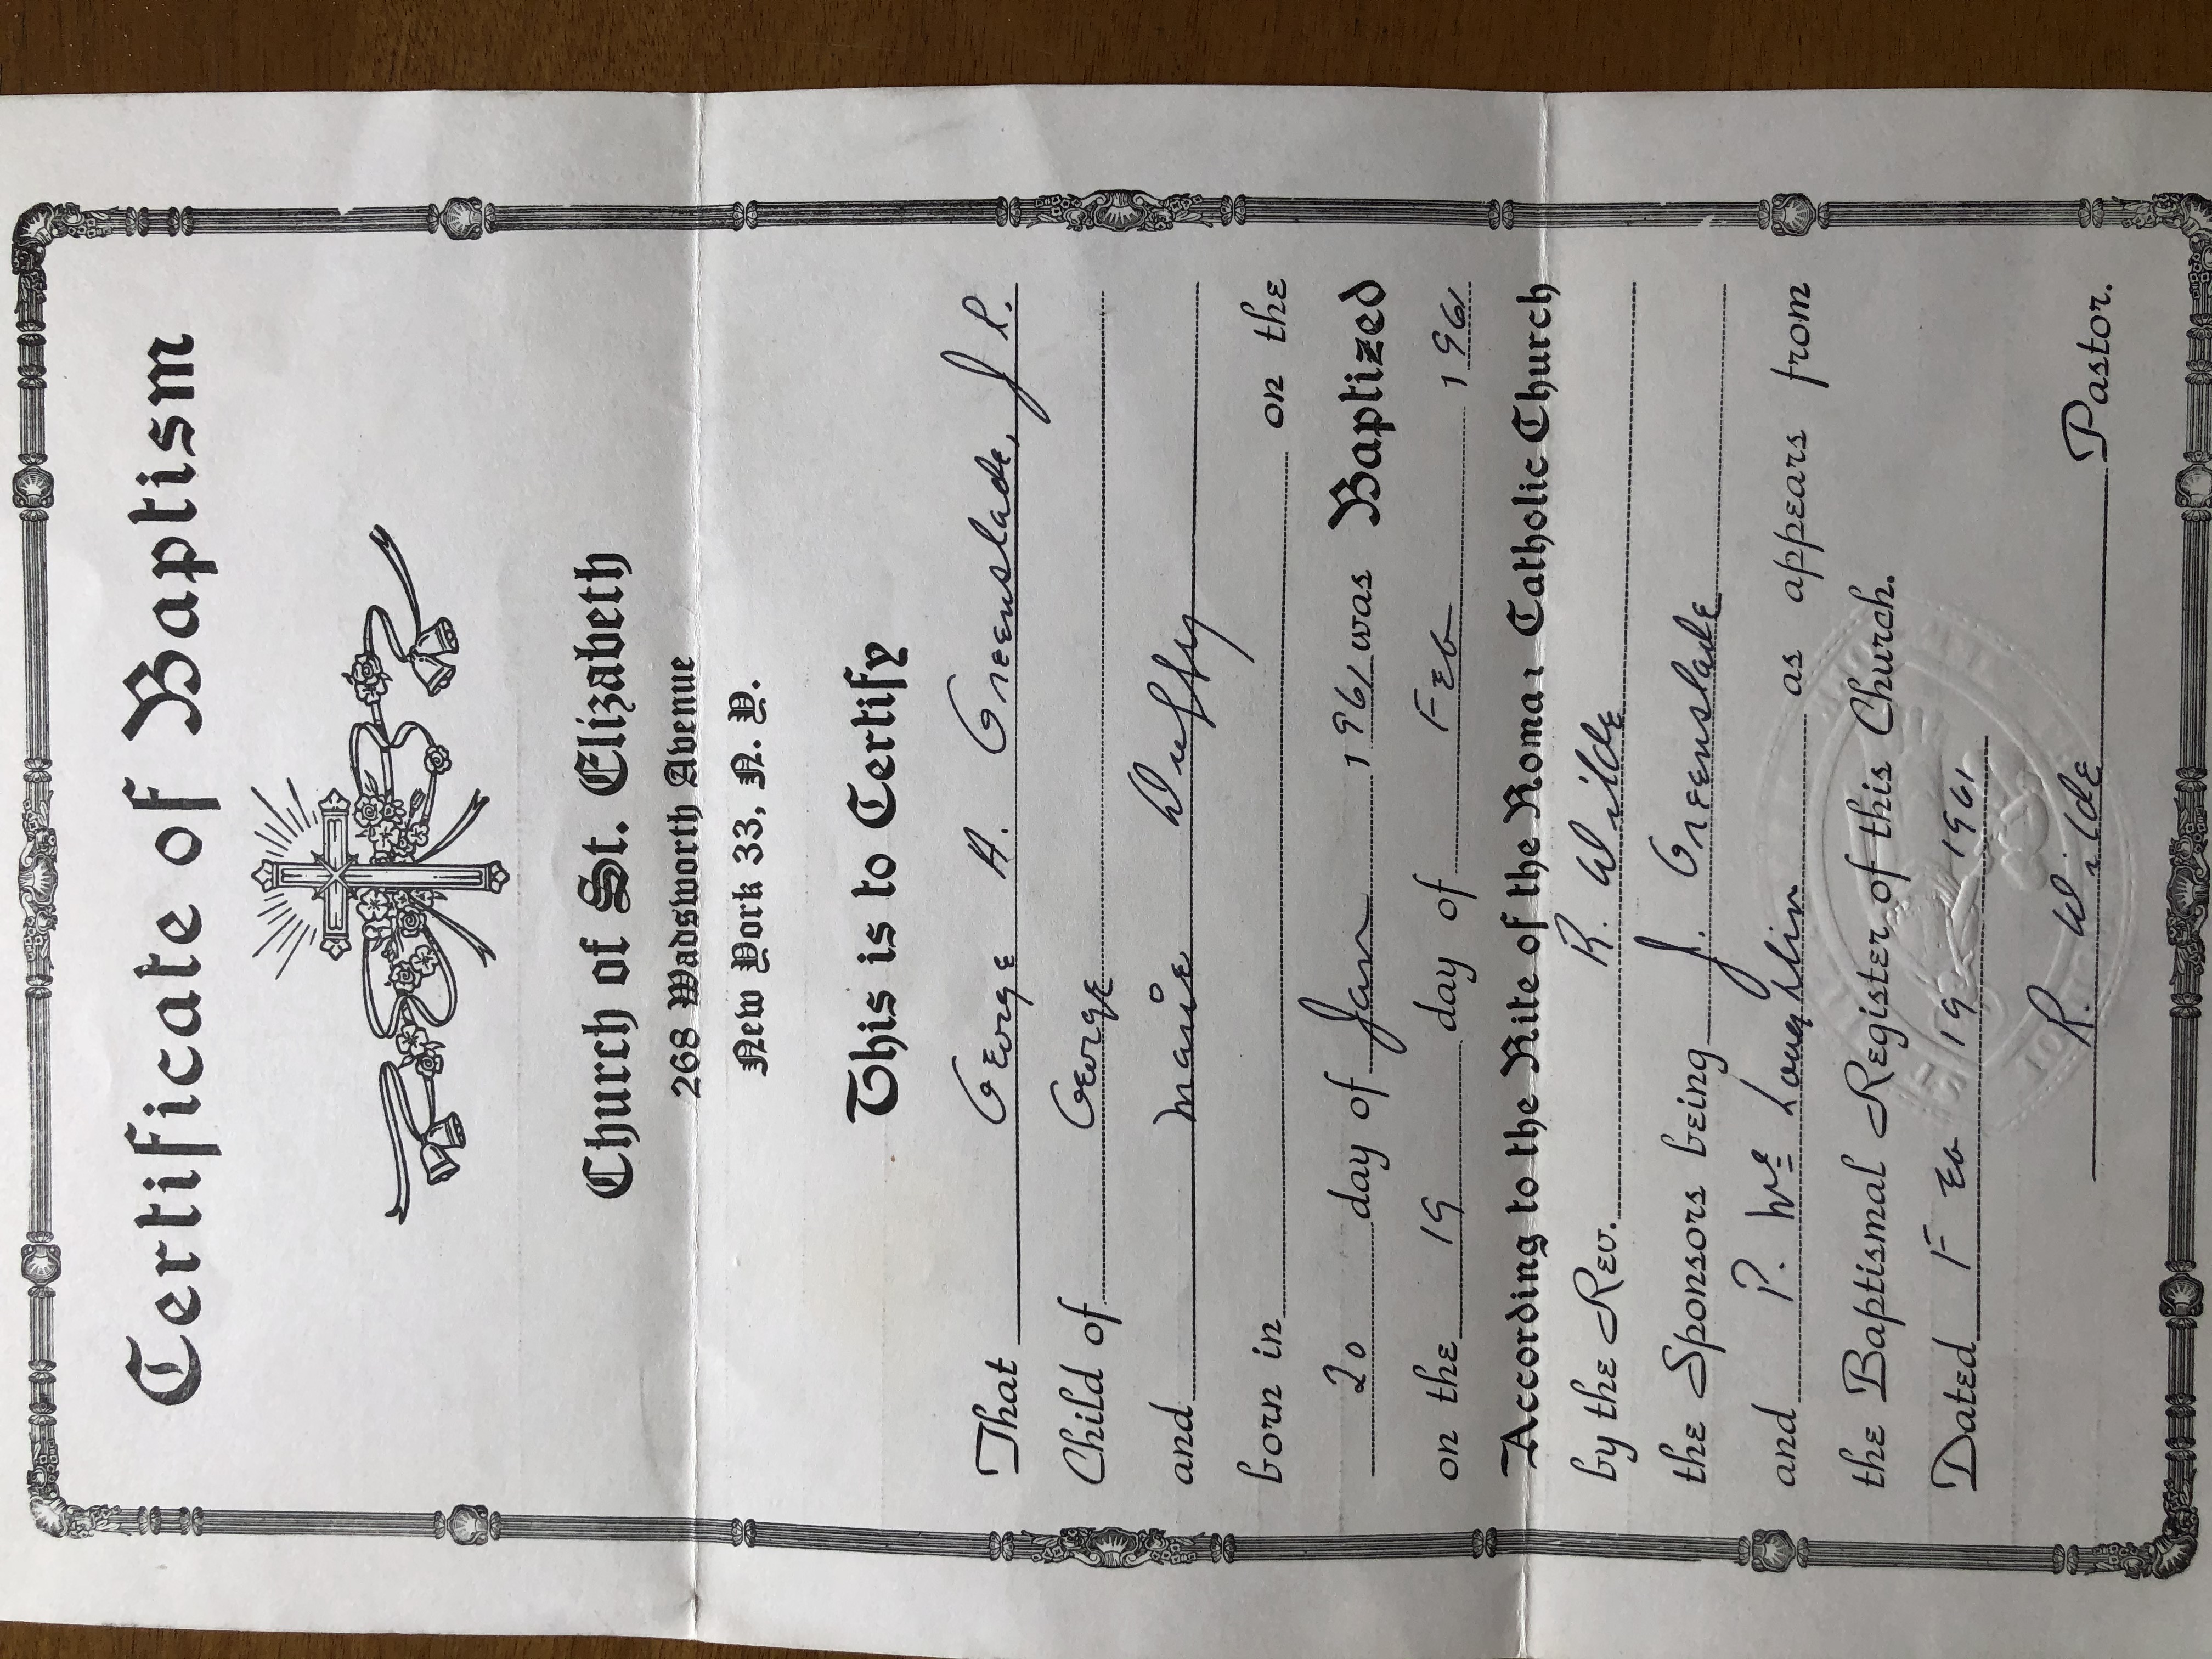 Certificate of Baptism
Church of St. Elizabeth
268 Wadsworth Avenue
New York 33, N. Y.
This is to Certify
That George A. Greenslade, JR.
Child of George
and Marie Duffy
born in on the
20 day of Jan 1961 was Baptized
on the 19 day of Feb 1961
According to the Rite of the Roman Catholic Church
by the Rev. R. Wilde
the Sponsors being J. Greenslade
and P. Mc Loughlin as appears from
the Baptismal Register of this Church.
Dated Feb 19 1961
R. Wilde Pastor.